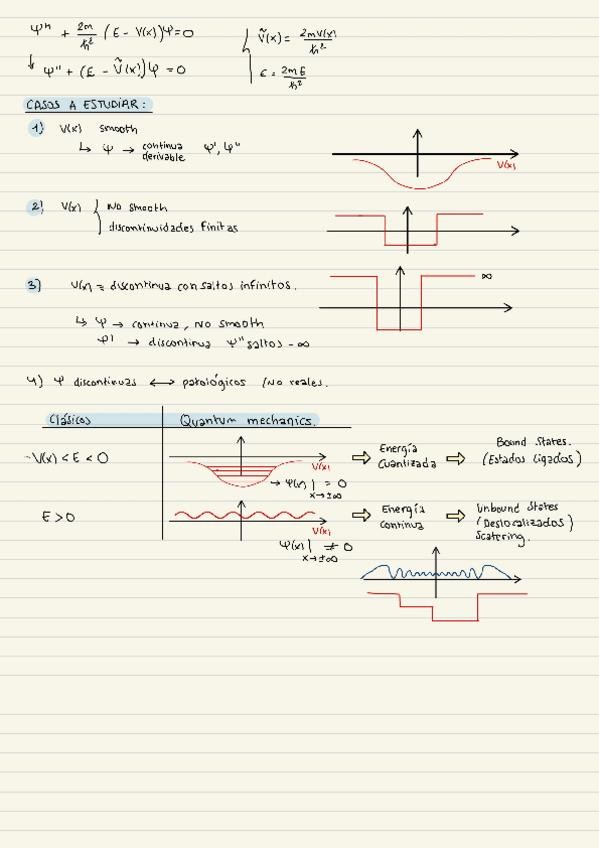 ψ'' + 2m/ħ² (E - V(x))ψ = 0
Ṽ(x) = 2mV(x)/ħ²
↓ ψ'' + (ε - Ṽ(x))ψ = 0
ε = 2mE/ħ²
CASOS A ESTUDIAR:
1) V(x) smooth
↳ ψ → continua derivable ψ', ψ''
V(x)
2) V(x) { No smooth
discontinuidades finitas
3) V(x) = discontinua con saltos infinitos.
∞
↳ ψ → continua, NO smooth
ψ' → discontinua ψ'' saltos -∞
4) ψ discontinuas ↔ patológicos (No reales.
Clásicos Quantum mechanics.
-V(x) < E < 0
V(x)
→ ψ(x)| x→±∞ = 0
⇒ Energía Cuantizada ⇒ Bound States. (Estados ligados)
E > 0
V(x)
ψ(x)| x→±∞ ≠ 0
⇒ Energía continua ⇒ Unbound States (Deslocalizados) Scatering.